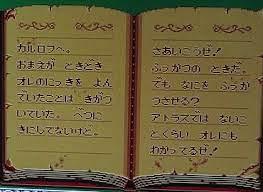 カルロフへ。
おまえが ときどき
オレのにっきを よん
でいたことは きがつ
いていた。 べつに
きにしてないけど。
さあいこうぜ!
ふっかつの ときだ。
でも なにを ふっか
つさせる?
アトラスでは ないこ
とくらい オレにも
わかってるぜ!